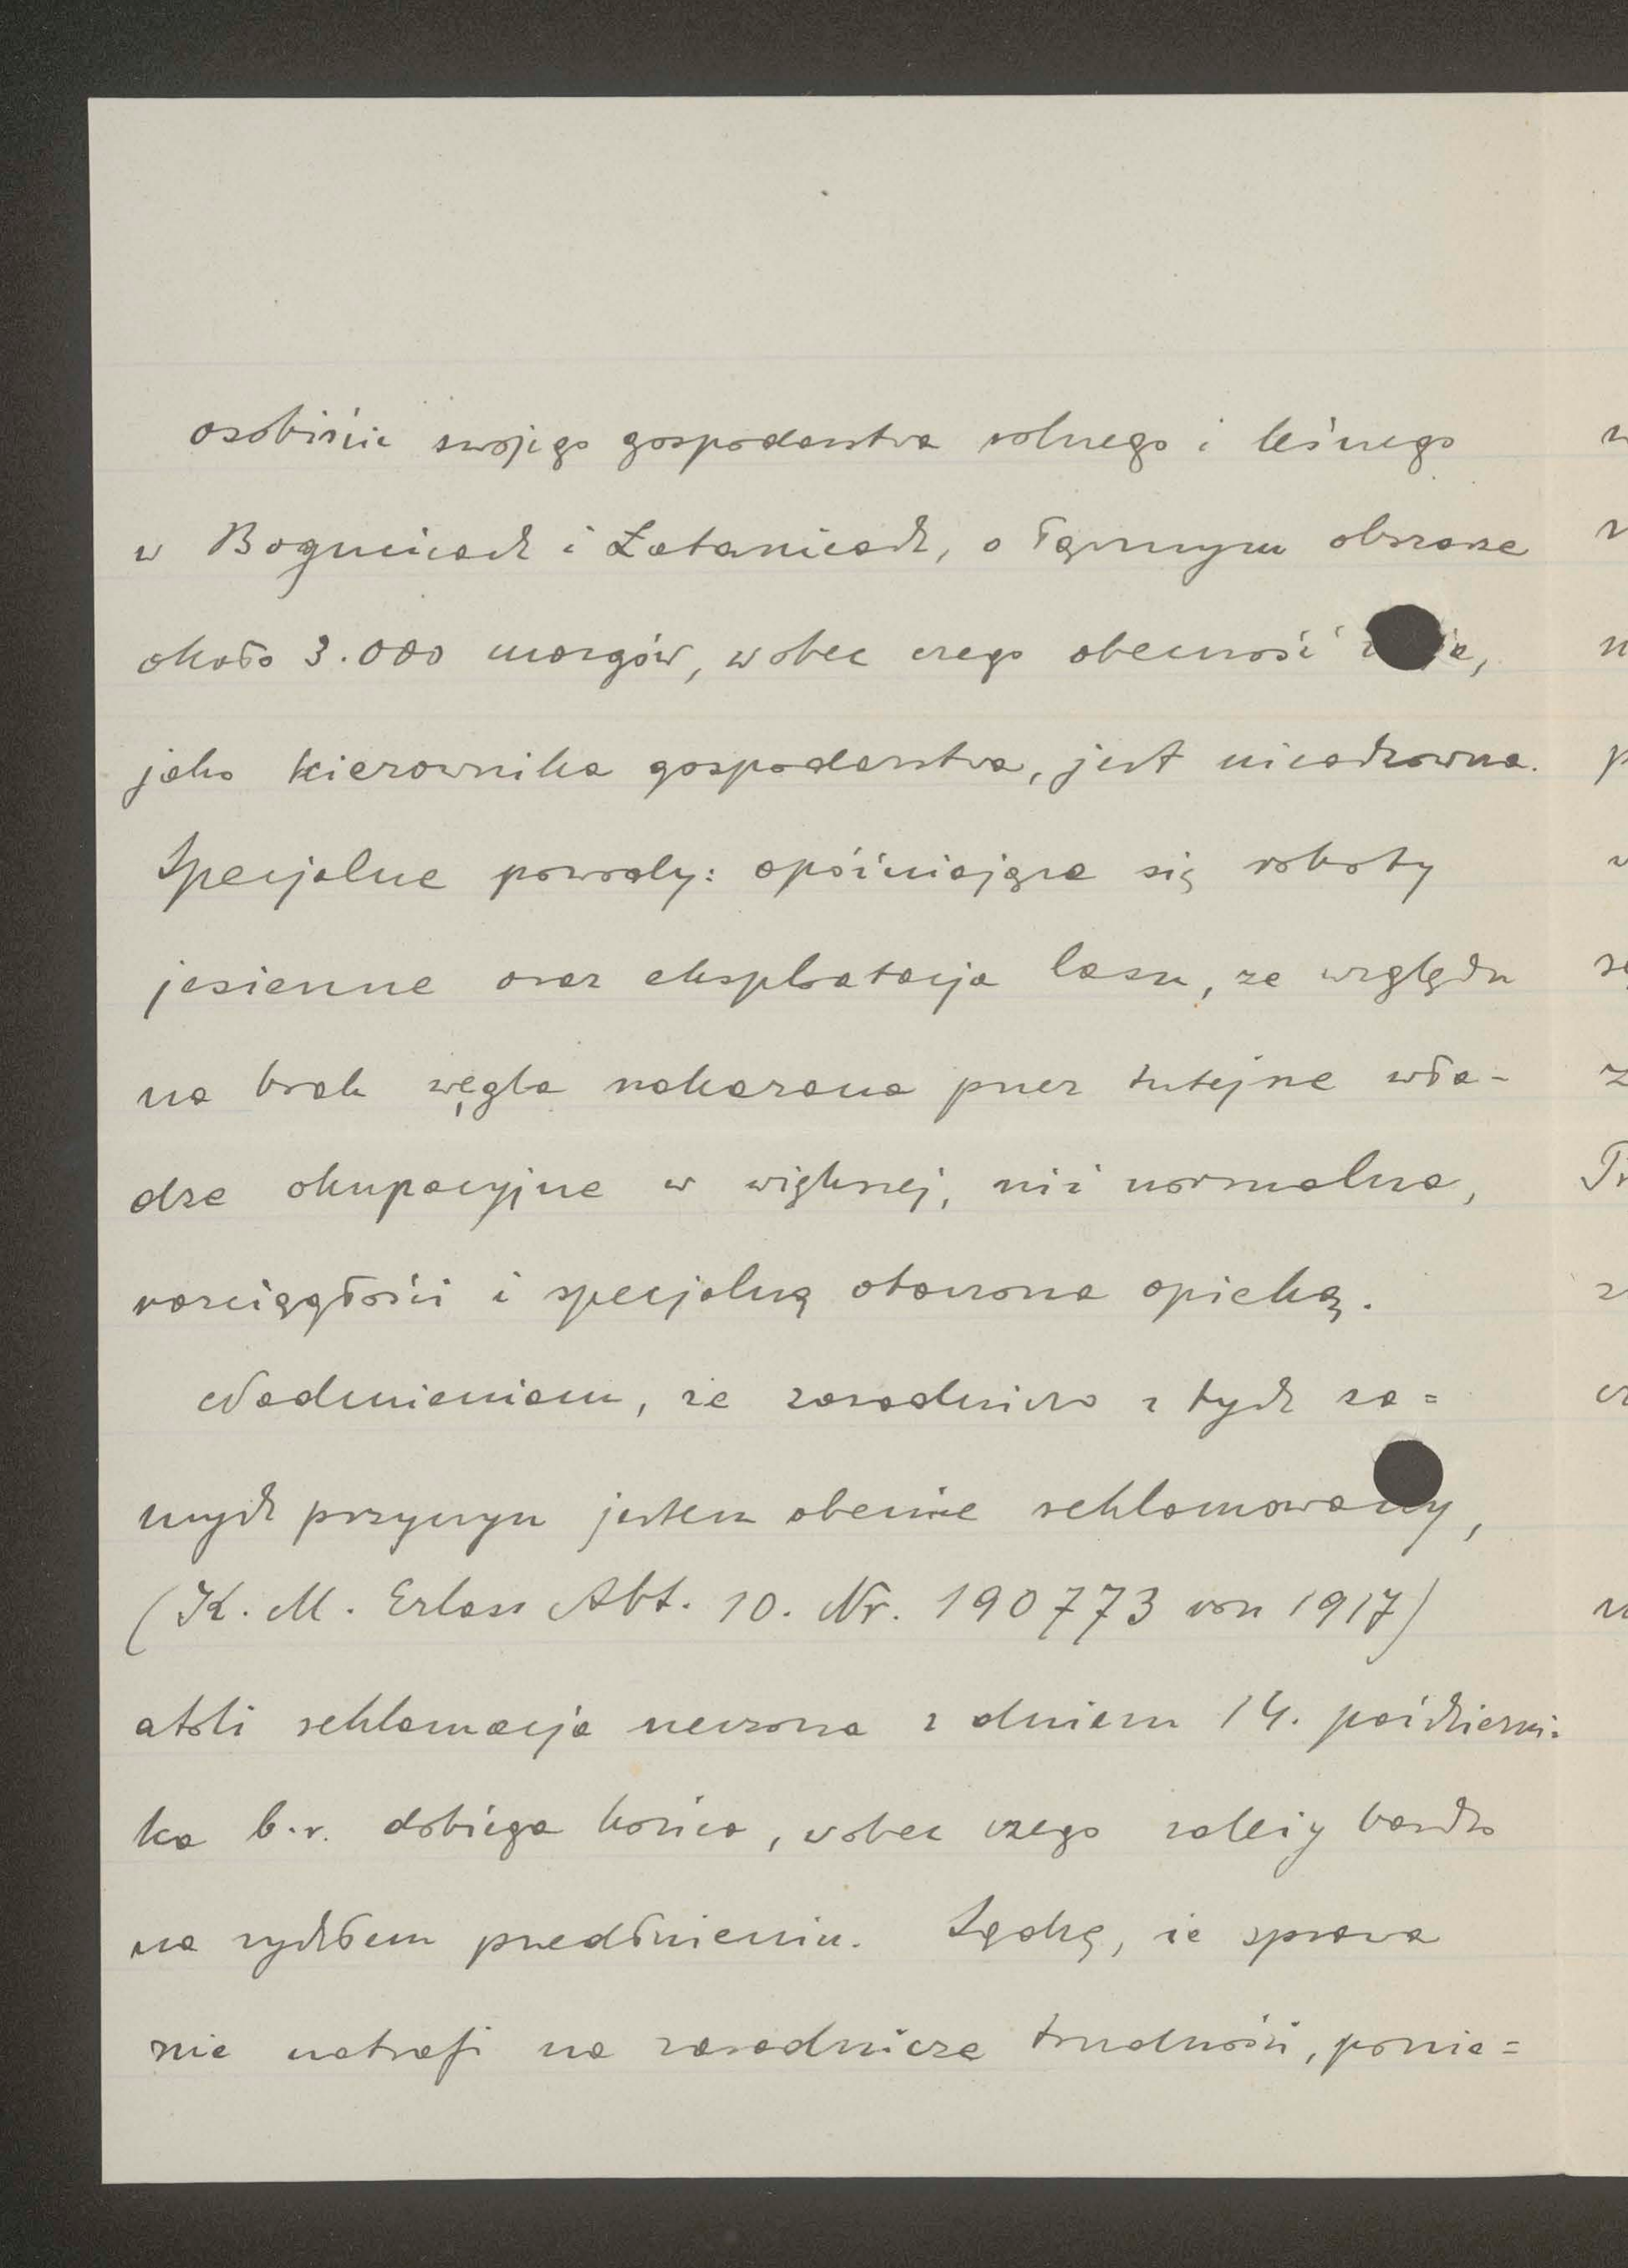 osobiście swojego gospodarstwa rolnego i leśnego
w i, o łącznym obszarze
około 3.000 morgów, wobec czego obecność
jako kierownika gospodarstwa, jest nieodzowna.
Specjalne powody: opóźniające się roboty
jesienne oraz eksploatacja lasu, ze względu
na brak węgla nakazana przez tutejsze wła-
dze okupacyjne w większej, niż normalna,
rozciągłości i specjalną otoczona opieką.
Nadmieniam, że zasadniczo z tych sa=
mych przyczyn jestem obecnie reklamowany,
(K. M. Erlass Abt. 10. Nr. 190773 von 1917)
atoli reklamacja rzeczona z dniem 14. październi=
ka b.r. dobiega końca, wobec czego zależy bardzo
na rychłem przedłużeniu. Sądzę, że sprawa
nie natrafi na zasadnicze trudności, ponie=